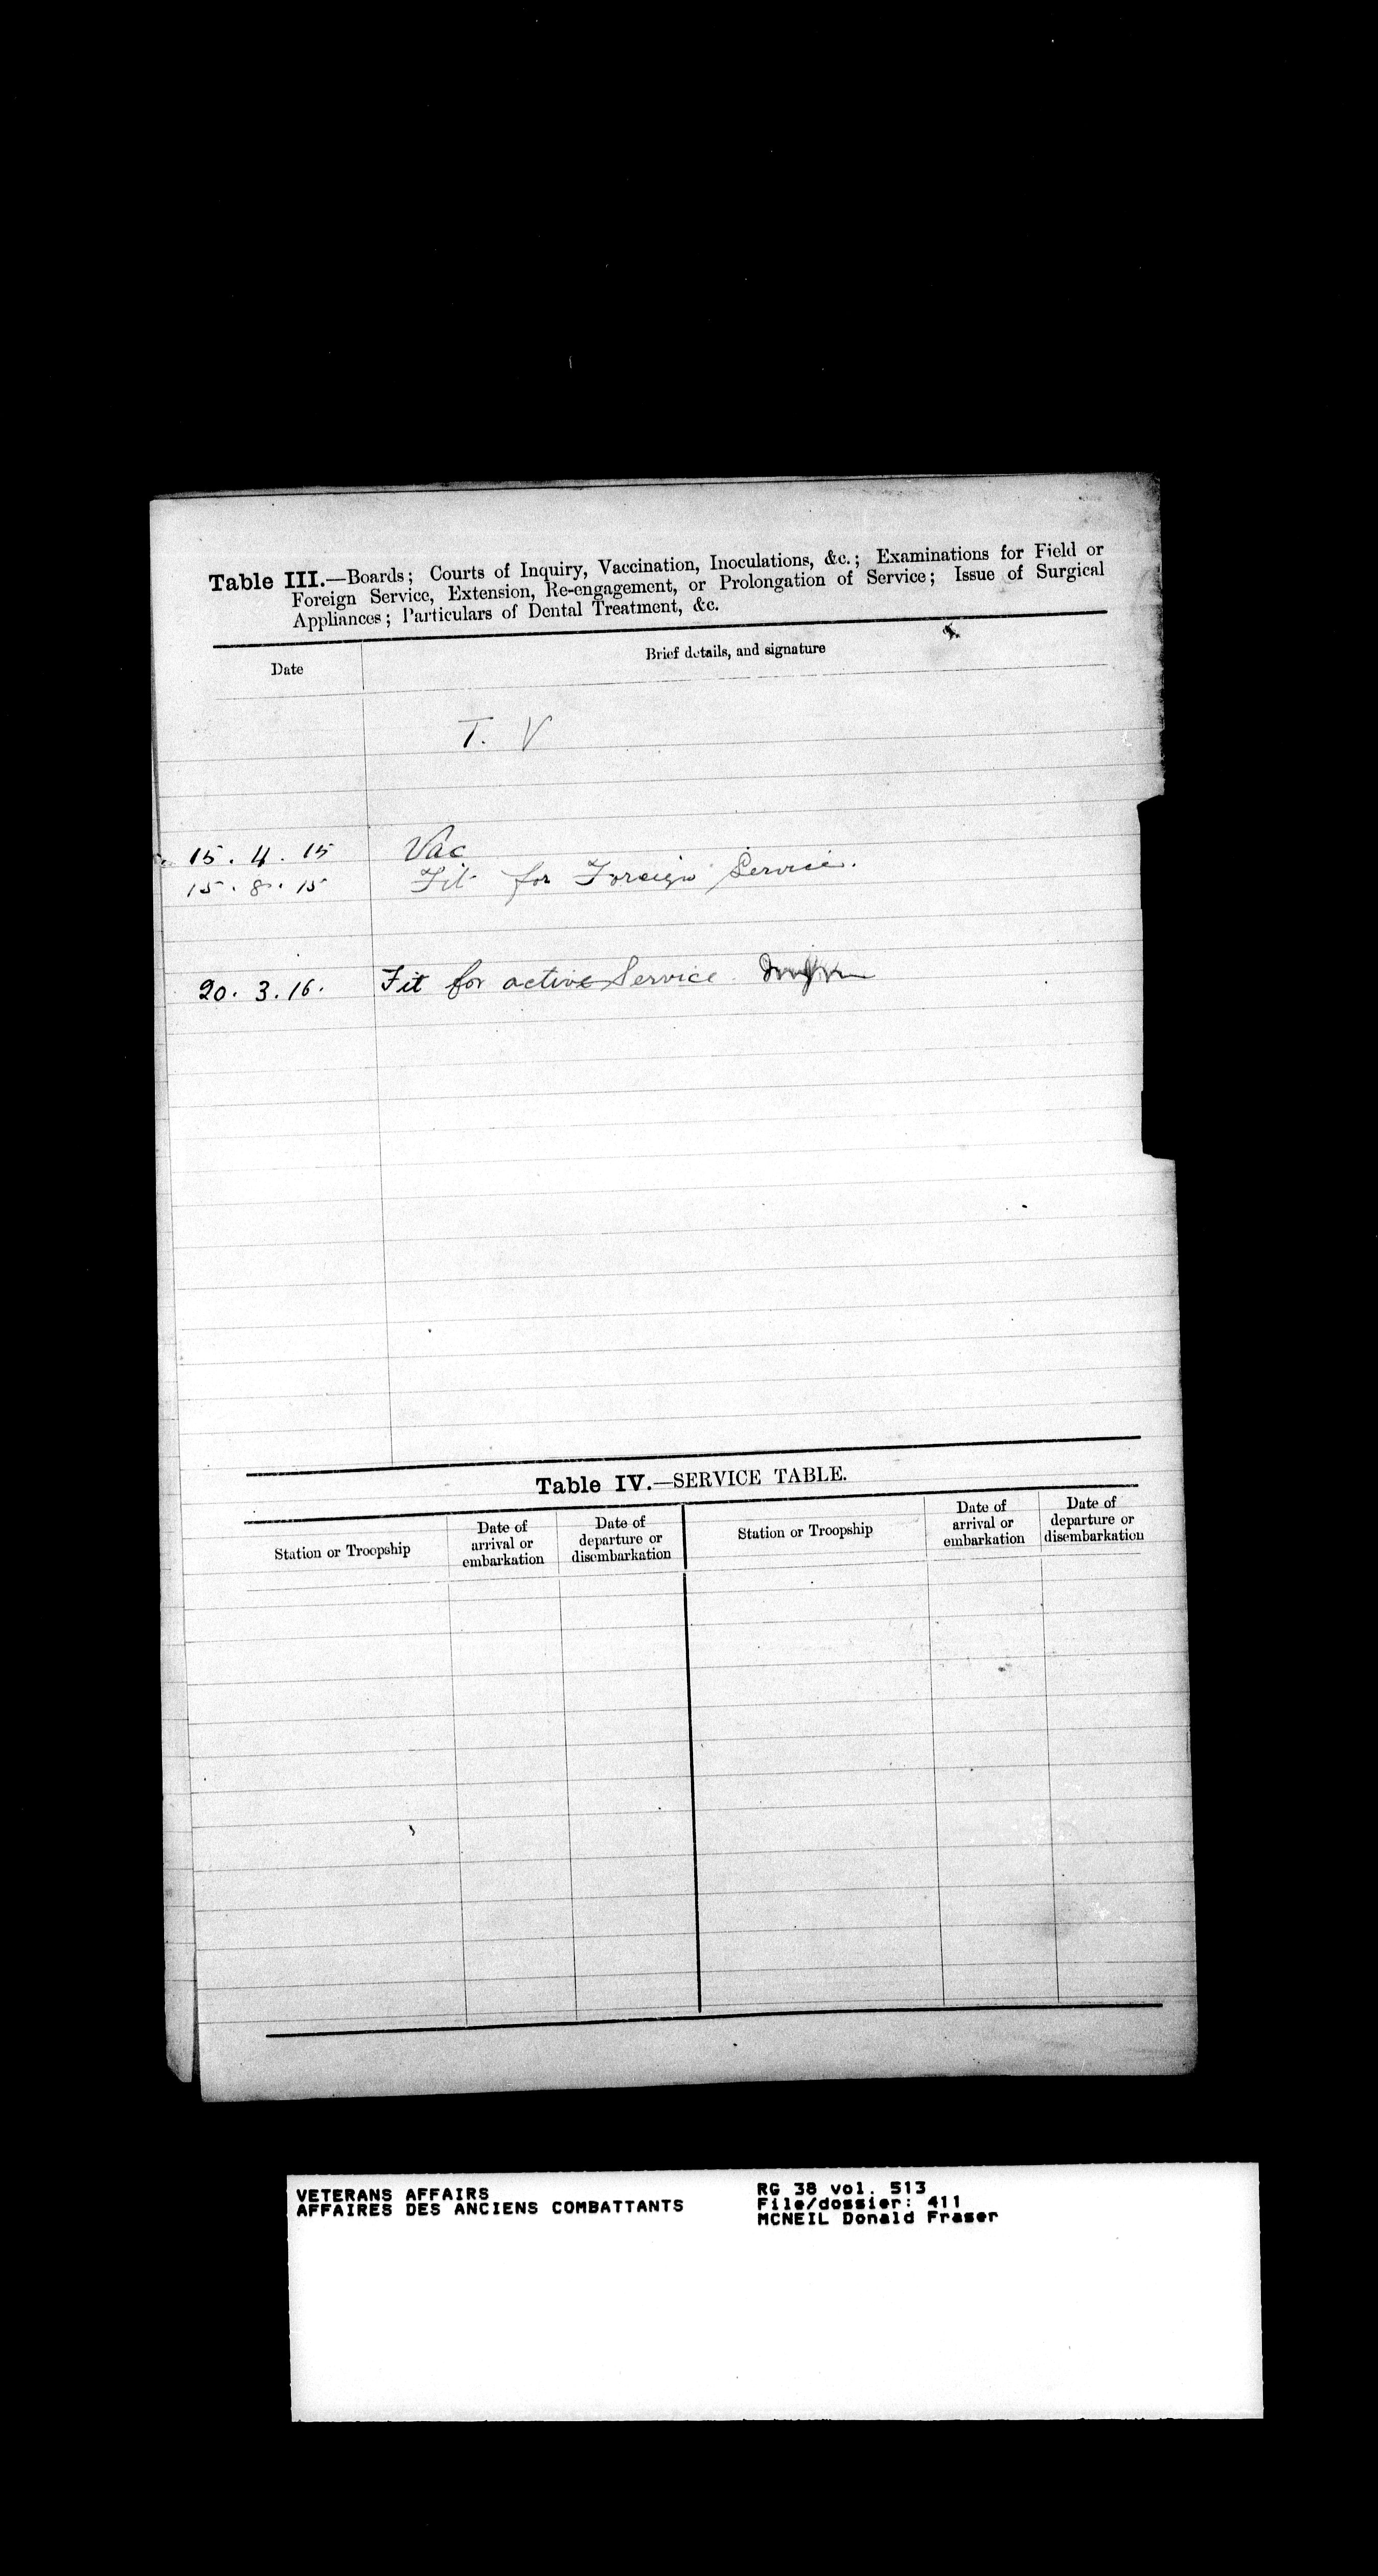 Table III.—Boards; Courts of Inquiry, Vaccination, Inoculations, &c.; Examinations for Field or
Foreign Service, Extension, Re-engagement, or Prolongation of Service; Issue of Surgical
Appliances; Particulars of Dental Treatment, &c.
Date Brief details, and signature
T. V
15. 4. 15 Vac
15. 8. 15 Fit for Foreign Service.
20. 3. 16. Fit for active Service
Table IV.—SERVICE TABLE.
Station or Troopship Date of arrival or embarkation Date of departure or disembarkation Station or Troopship Date of arrival or embarkation Date of departure or disembarkation
VETERANS AFFAIRS RG 38 vol. 513
AFFAIRES DES ANCIENS COMBATTANTS File/dossier: 411
MCNEIL Donald Fraser